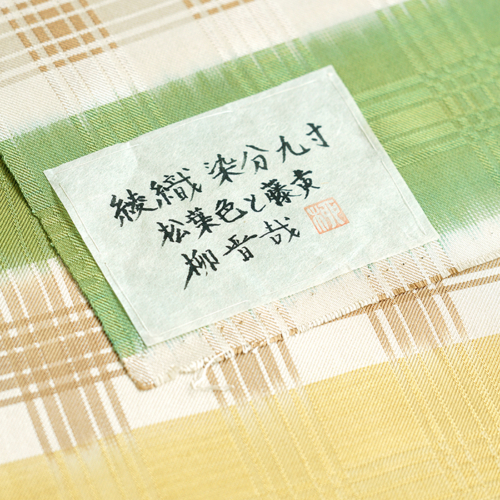 綾織 染分九寸
松葉色と藤黄
柳晋哉